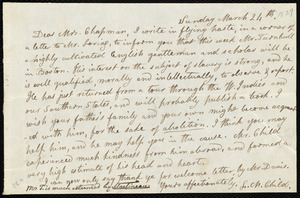 Sunday March 24th, 1839
Dear Mrs. Chapman, I write in flying haste, in a corner of
a letter to Mr. Loring, to inform you that this week Mr. Turnbull
a highly cultivated English gentleman and scholar will be
in Boston. His interest on the subject of slavery is strong, and he
is well qualified, morally and intellectually, to observe & report.
He has just returned from a tour through the W. Indies and
our Southern States, and will probably publish a book. I
wish your father's family and your own might become acquaint-
ed with him, for the sake of abolition. I think you may
help him, and he may help you in the cause. Mr. Child
experienced much kindness from him abroad, and formed a
very high estimate of his head and heart.
I can now only say thank ye for welcome letter by Mr. Davis.
Mr. T. is much esteemed by Martineau. Yours affectionately, L. M. Child.